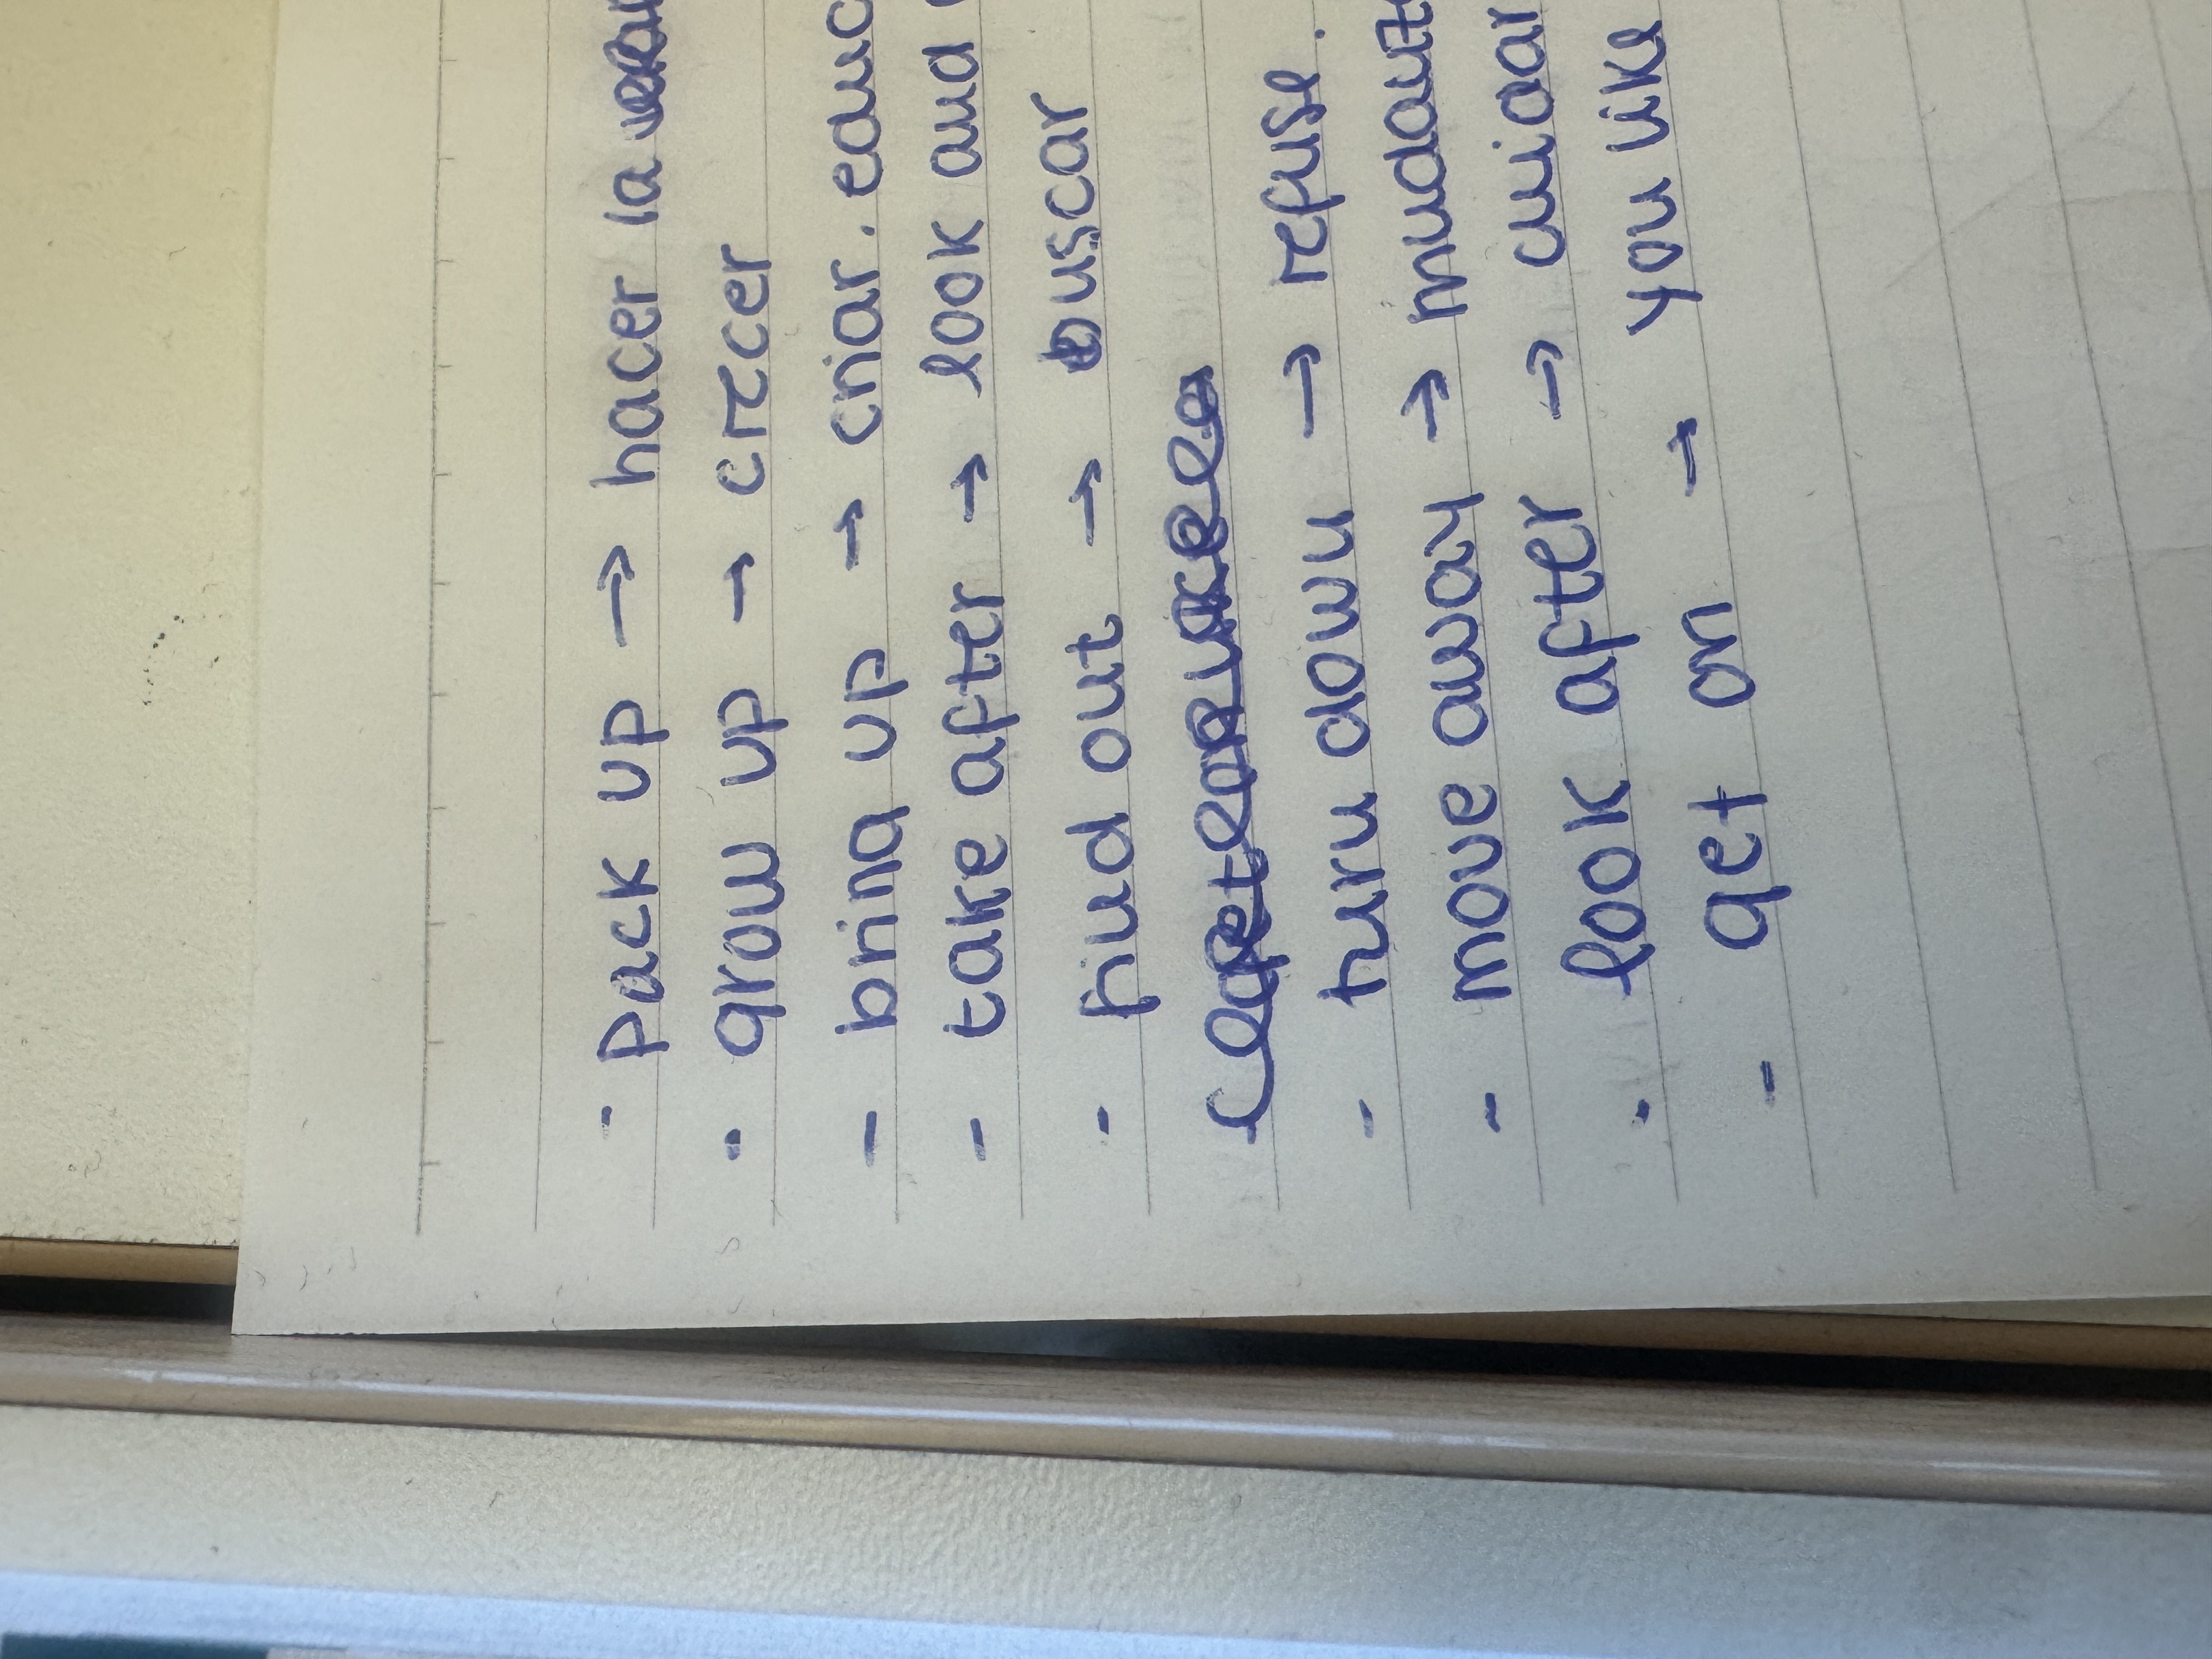 · pack up → hacer la
· grow up → crecer
- bring up → criar. educ
- take after → look and
- find out → buscar
- turn down → refuse.
- move away → mudart
· look after → cuidar
- get on → you like